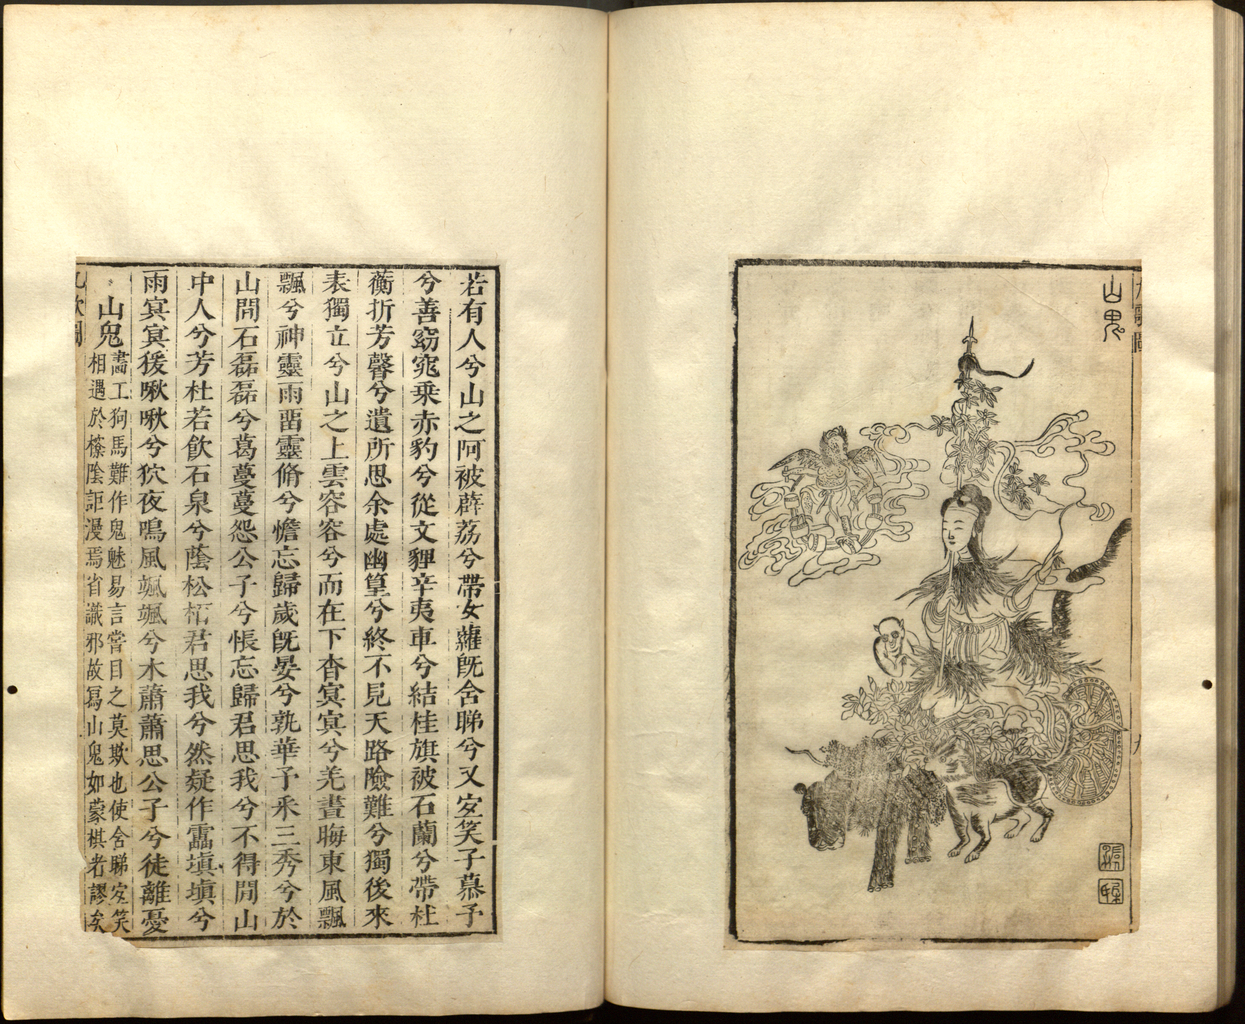 九歌圖
山鬼
九
若有人兮山之阿被薜荔兮帶女蘿旣含睇兮又宐笑子慕予
兮善窈窕乘赤豹兮從文貍辛夷車兮結桂旗被石蘭兮帶杜
蘅折芳馨兮遺所思余處幽篁兮終不見天路險難兮獨後來
表獨立兮山之上雲容容兮而在下杳冥冥兮羌晝晦東風飄
飄兮神靈雨畱靈脩兮憺忘歸歲旣晏兮孰華予采三秀兮於
山閒石磊磊兮葛蔓蔓怨公子兮悵忘歸君思我兮不得閒山
中人兮芳杜若飮石泉兮蔭松栢君思我兮然疑作靁塡塡兮
雨冥冥猨啾啾兮狖夜鳴風颯颯兮木蕭蕭思公子兮徒離憂
山鬼
畵工狗馬難作鬼魅易言嘗目之莫欺也使含睇宐笑
相遇於篠陰詎漫焉省識邪故寫山鬼如蒙棋者謬矣
九歌圖